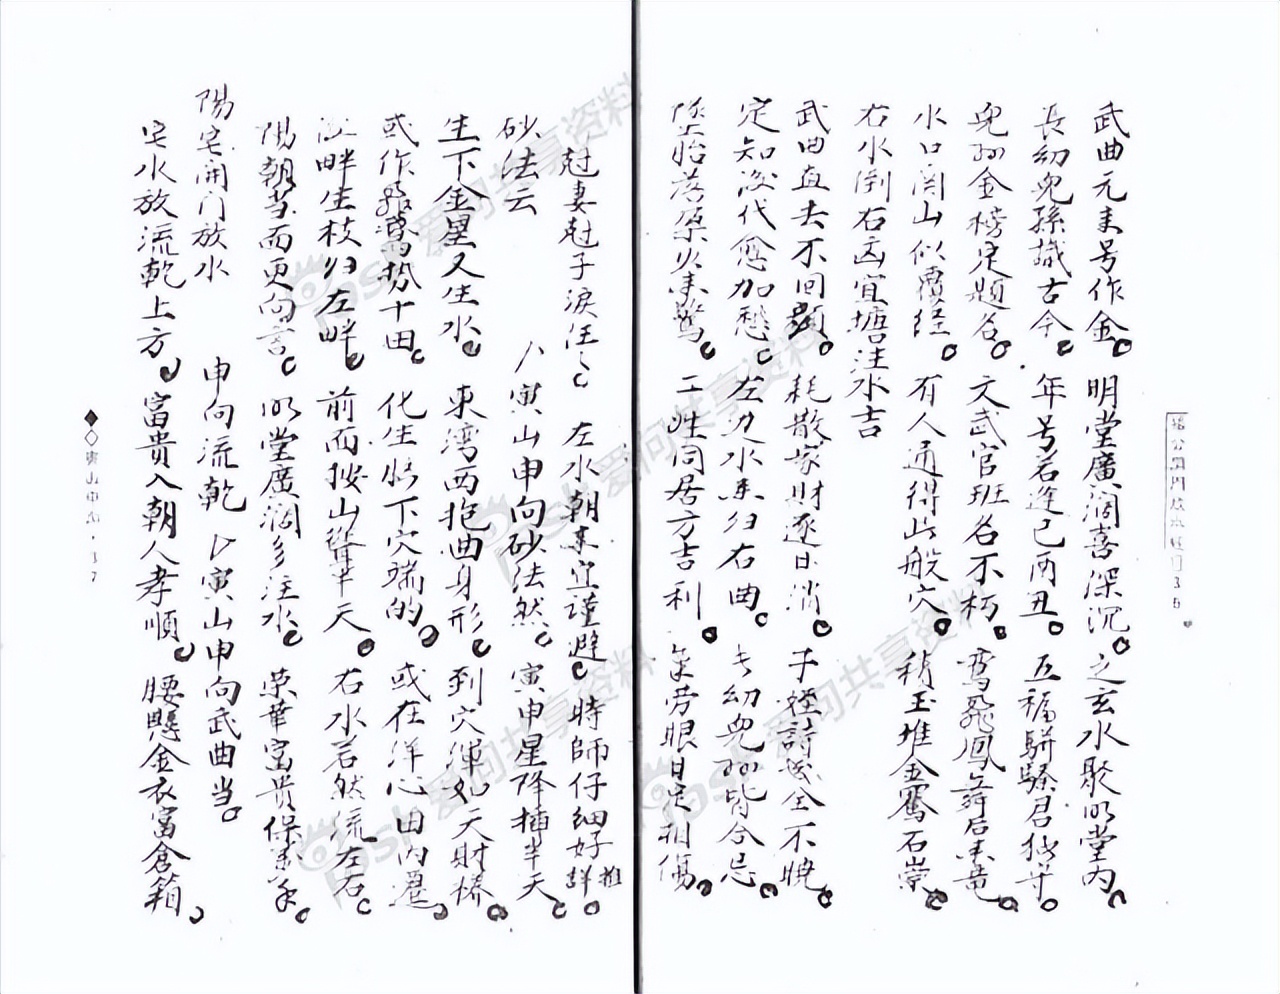 武曲元来号作金。明堂廣闊喜深沉。之玄水聚明堂内。
長幼兒孫識古今。年号若逢己酉丑。五福駢臻君
兒孫金榜定題名。文武官班名不朽。鸾飛鳳
水口関山似覆。有人通得此般穴。積玉堆金賽石崇。
右水倒右凶宜塘注水吉
武曲直去不回頭。耗散家财逐日消。子姪詩全不晓。
定知後代愈加愁。左边水来归右曲。長幼兒孙皆合忌。
墜胎落孕火来驚。二姓同居方吉利。眼目足相傷。
尅妻尅子淚汪〻。左水朝来宜謹避。時師仔細好推詳。
砂法云 寅山申向砂法然。寅申星降插半天。
生下金星又生水。東湾西抱曲身形。到穴渾如天财橋。
或作勢十田。化生腦下穴端的。或在洋心田内遷。
畔生枝归左畔。前面按山聳半天。右水若然流左右。
陽朝当面更向言。明堂廣濶多注水。荣華富贵保
陽宅開门放水 申向流乾 寅山申向武曲当。
宅水放流乾上方。富貴入朝人孝順。腰懸金衣富倉箱。
楊公開門放水經 36
寅山申向·37
爱问共享资料